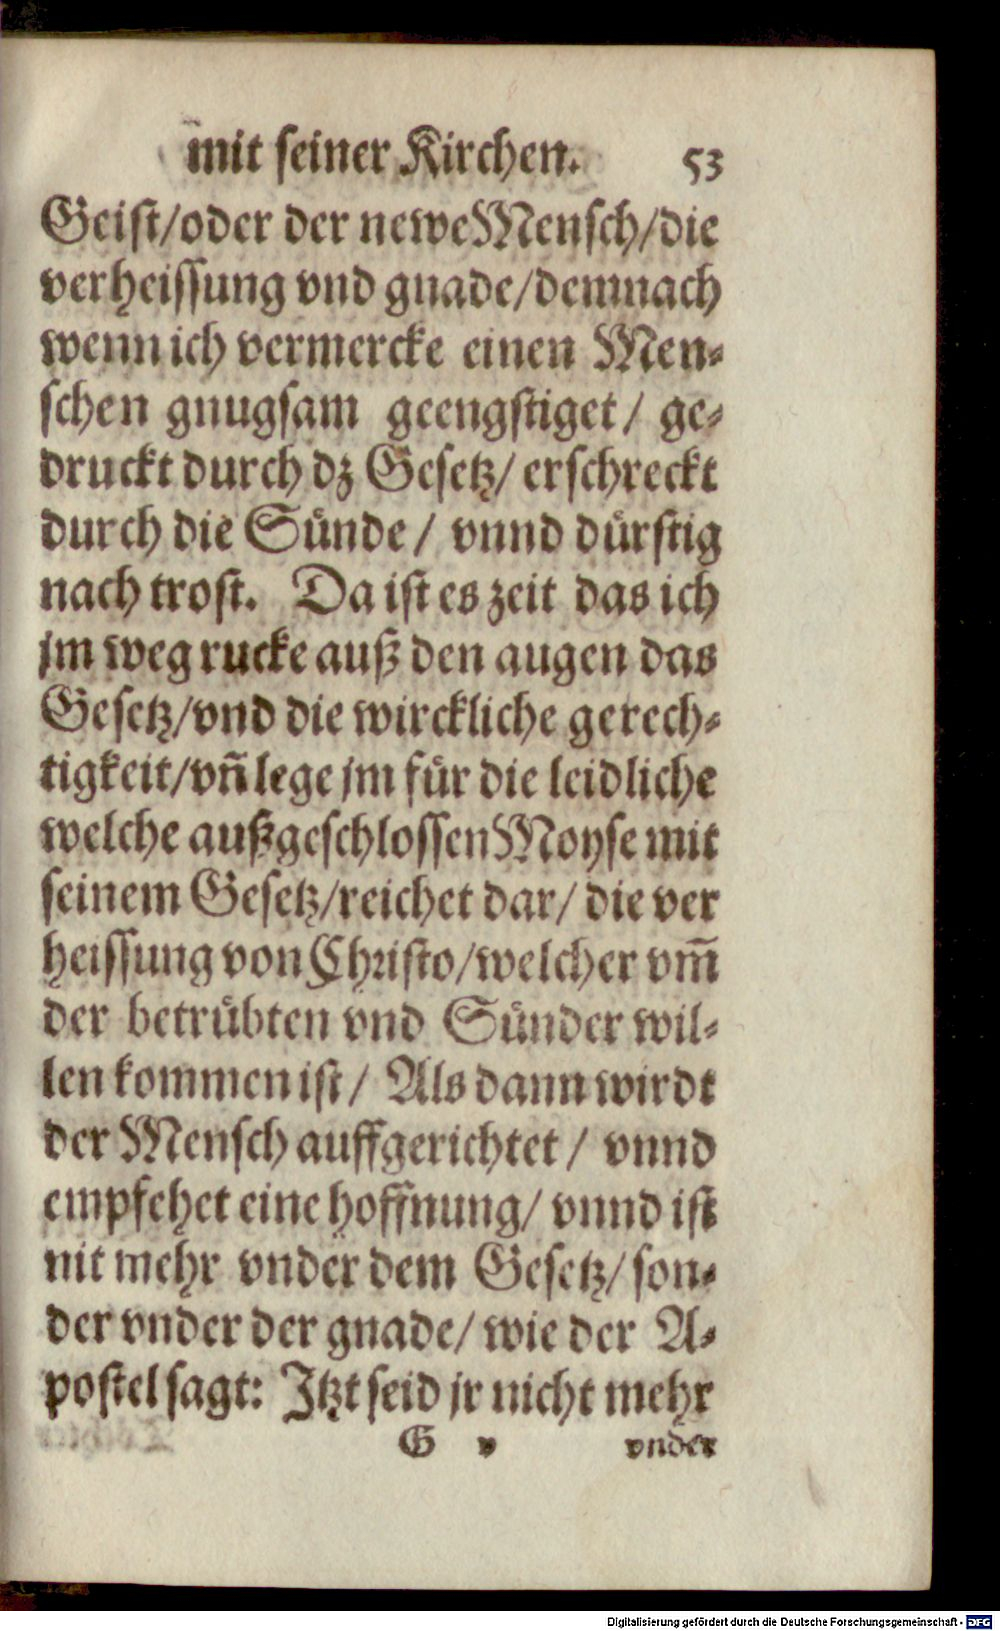 mit seiner Kirchen. 53
Geist/oder der newe Mensch/die
verheissung vnd gnade/demnach
wenn ich vermercke einen Men-
schen gnugsam geengstiget/ ge-
druckt durch dz Gesetz/ erschreckt
durch die Sünde/ vnnd dürstig
nach trost. Da ist es zeit das ich
jm weg rucke auß den augen das
Gesetz/vnd die wirckliche gerech-
tigkeit/vñ lege jm für die leidliche
welche außgeschlossen Moyse mit
seinem Gesetz/reichet dar/ die ver
heissung von Christo/welcher vm̃
der betrübten vnd Sünder wil-
len kommen ist/ Als dann wirdt
der Mensch auffgerichtet/ vnnd
empfehet eine hoffnung/ vnnd ist
nit mehr vnder dem Gesetz/ son-
der vnder der gnade/ wie der A-
postel sagt: Jtzt seid jr nicht mehr
G v vnder
Digitalisierung gefördert durch die Deutsche Forschungsgemeinschaft - DFG